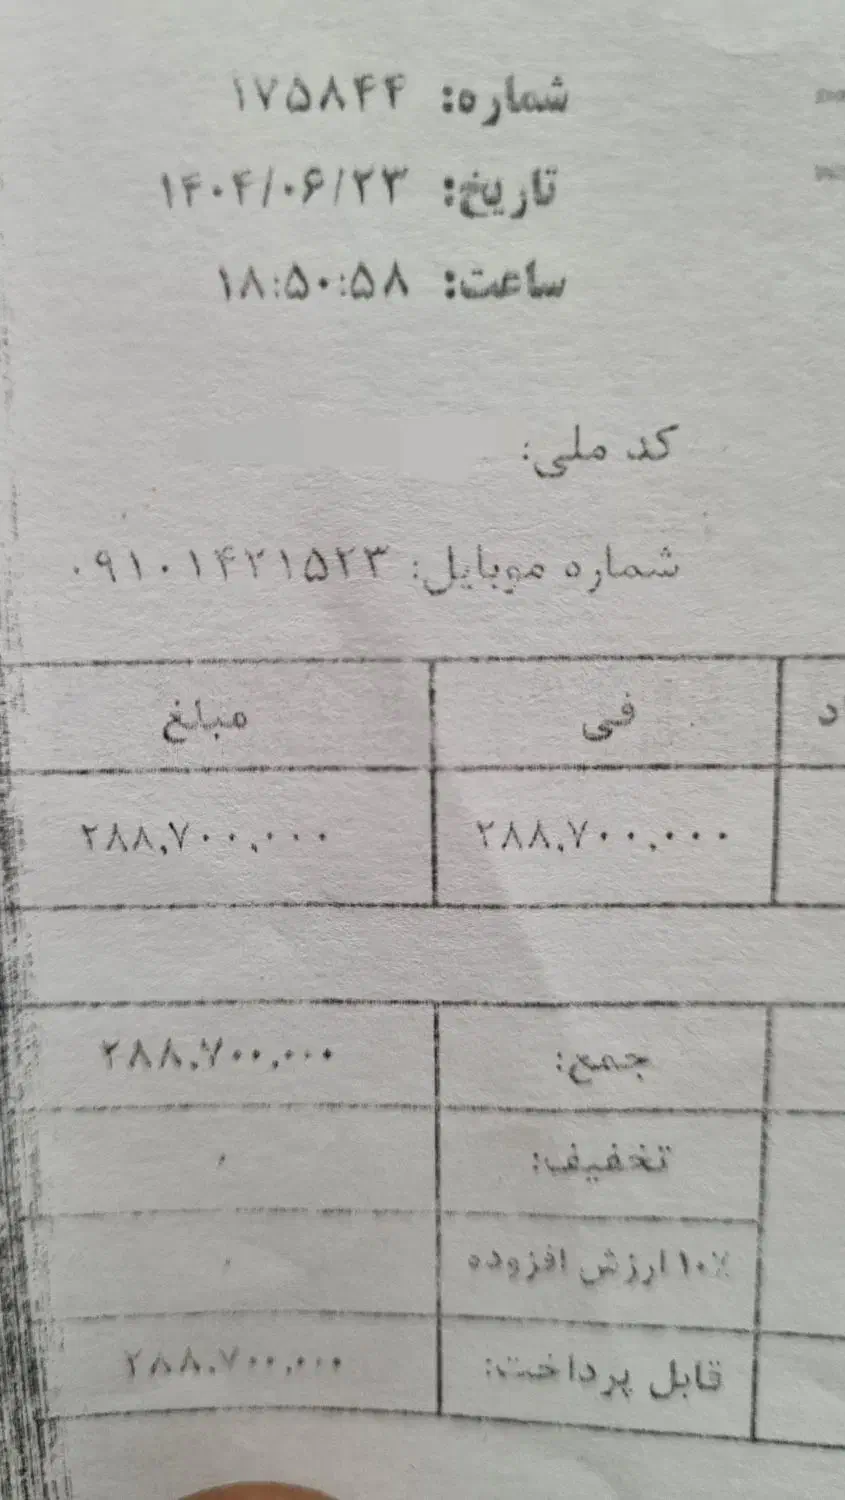 شماره: ۱۷۵۸۴۴
تاریخ: ۱۴۰۴/۰۶/۲۳
ساعت: ۱۸:۵۰:۵۸
کد ملی:
شماره موبایل: ۰۹۱۰۱۴۲۱۵۲۳
فی مبلغ
۲۸۸,۷۰۰,۰۰۰ ۲۸۸,۷۰۰,۰۰۰
جمع: ۲۸۸,۷۰۰,۰۰۰
تخفیف: ۰
۱۰٪ ارزش افزوده ۰
قابل پرداخت: ۲۸۸,۷۰۰,۰۰۰